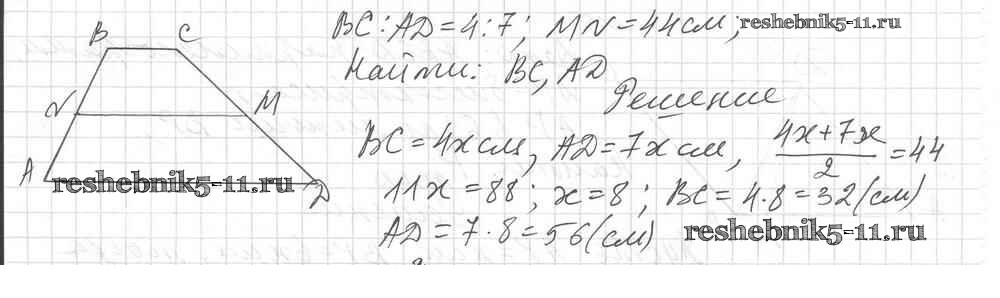 BC:AD=4:7; MN=44см; reshebnik5-11.ru
Найти: BC, AD
Решение
BC=4x см, AD=7x см, (4x+7x)/2=44
11x=88; x=8; BC=4·8=32(см)
AD=7·8=56(см) reshebnik5-11.ru
B C
N M
A D
reshebnik5-11.ru